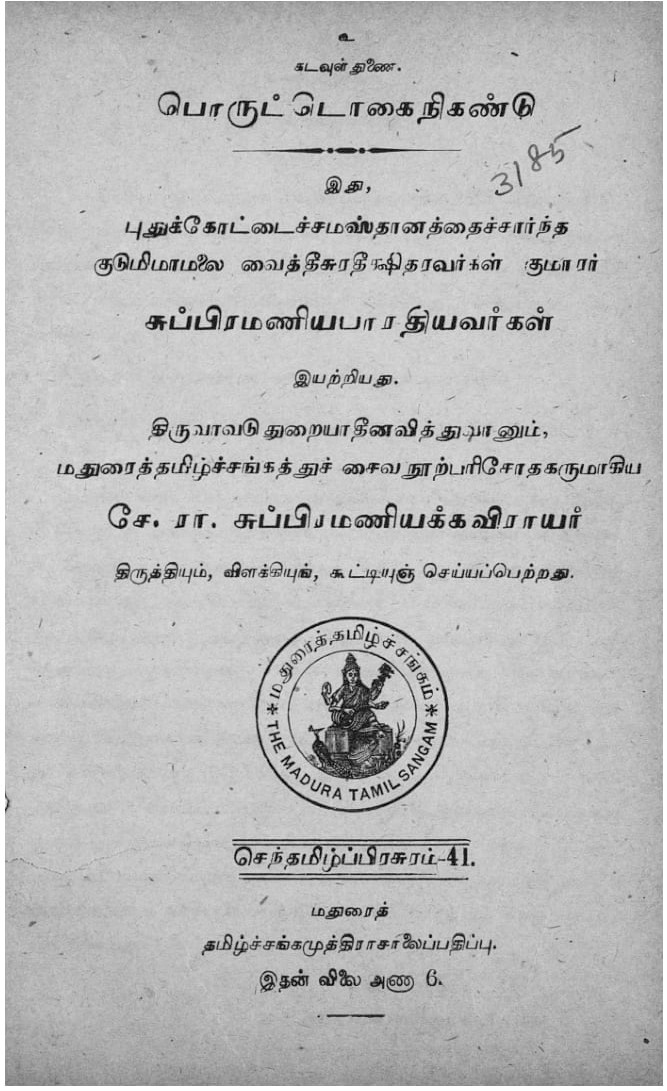 உ
கடவுள் துணை.
பொருட் டொகைநிகண்டு
3185
இது,
புதுக்கோட்டைச்சமஸ்தானத்தைச்சார்ந்த
குடுமிமாமலை வைத்தீசுரதீக்ஷிதரவர்கள் குமாரர்
சுப்பிரமணியபாரதியவர்கள்
இயற்றியது.
திருவாவடுதுறையாதீனவித்துவானும்,
மதுரைத்தமிழ்ச்சங்கத்துச் சைவநூற்பரிசோதகருமாகிய
சே. ரா. சுப்பிரமணியக்கவிராயர்
திருத்தியும், விளக்கியுங், கூட்டியுஞ் செய்யப்பெற்றது.
* மதுரைத்தமிழ்ச்சங்கம் *
THE MADURA TAMIL SANGAM
செந்தமிழ்ப்பிரசுரம்-41.
மதுரைத்
தமிழ்ச்சங்கமுத்திராசாலைப்பதிப்பு.
இதன் விலை அணா 6.